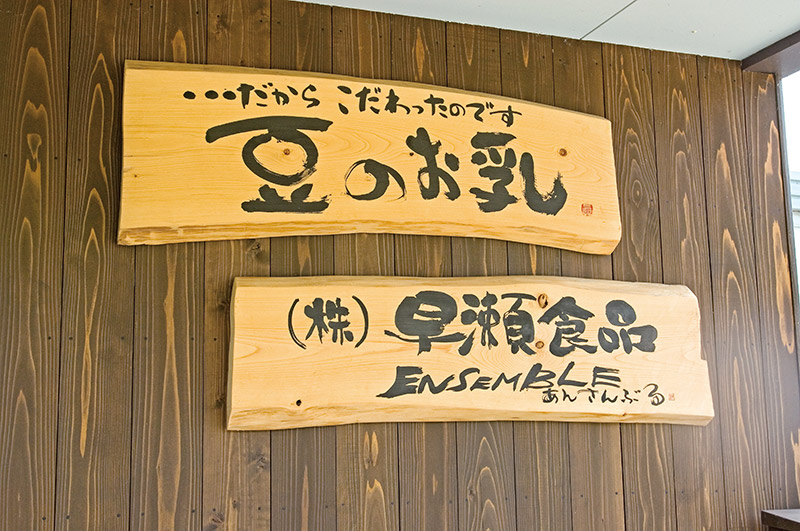 ・・・だから こだわったのです
豆のお乳
（株）早瀬食品
ENSEMBLE
あんさんぶる